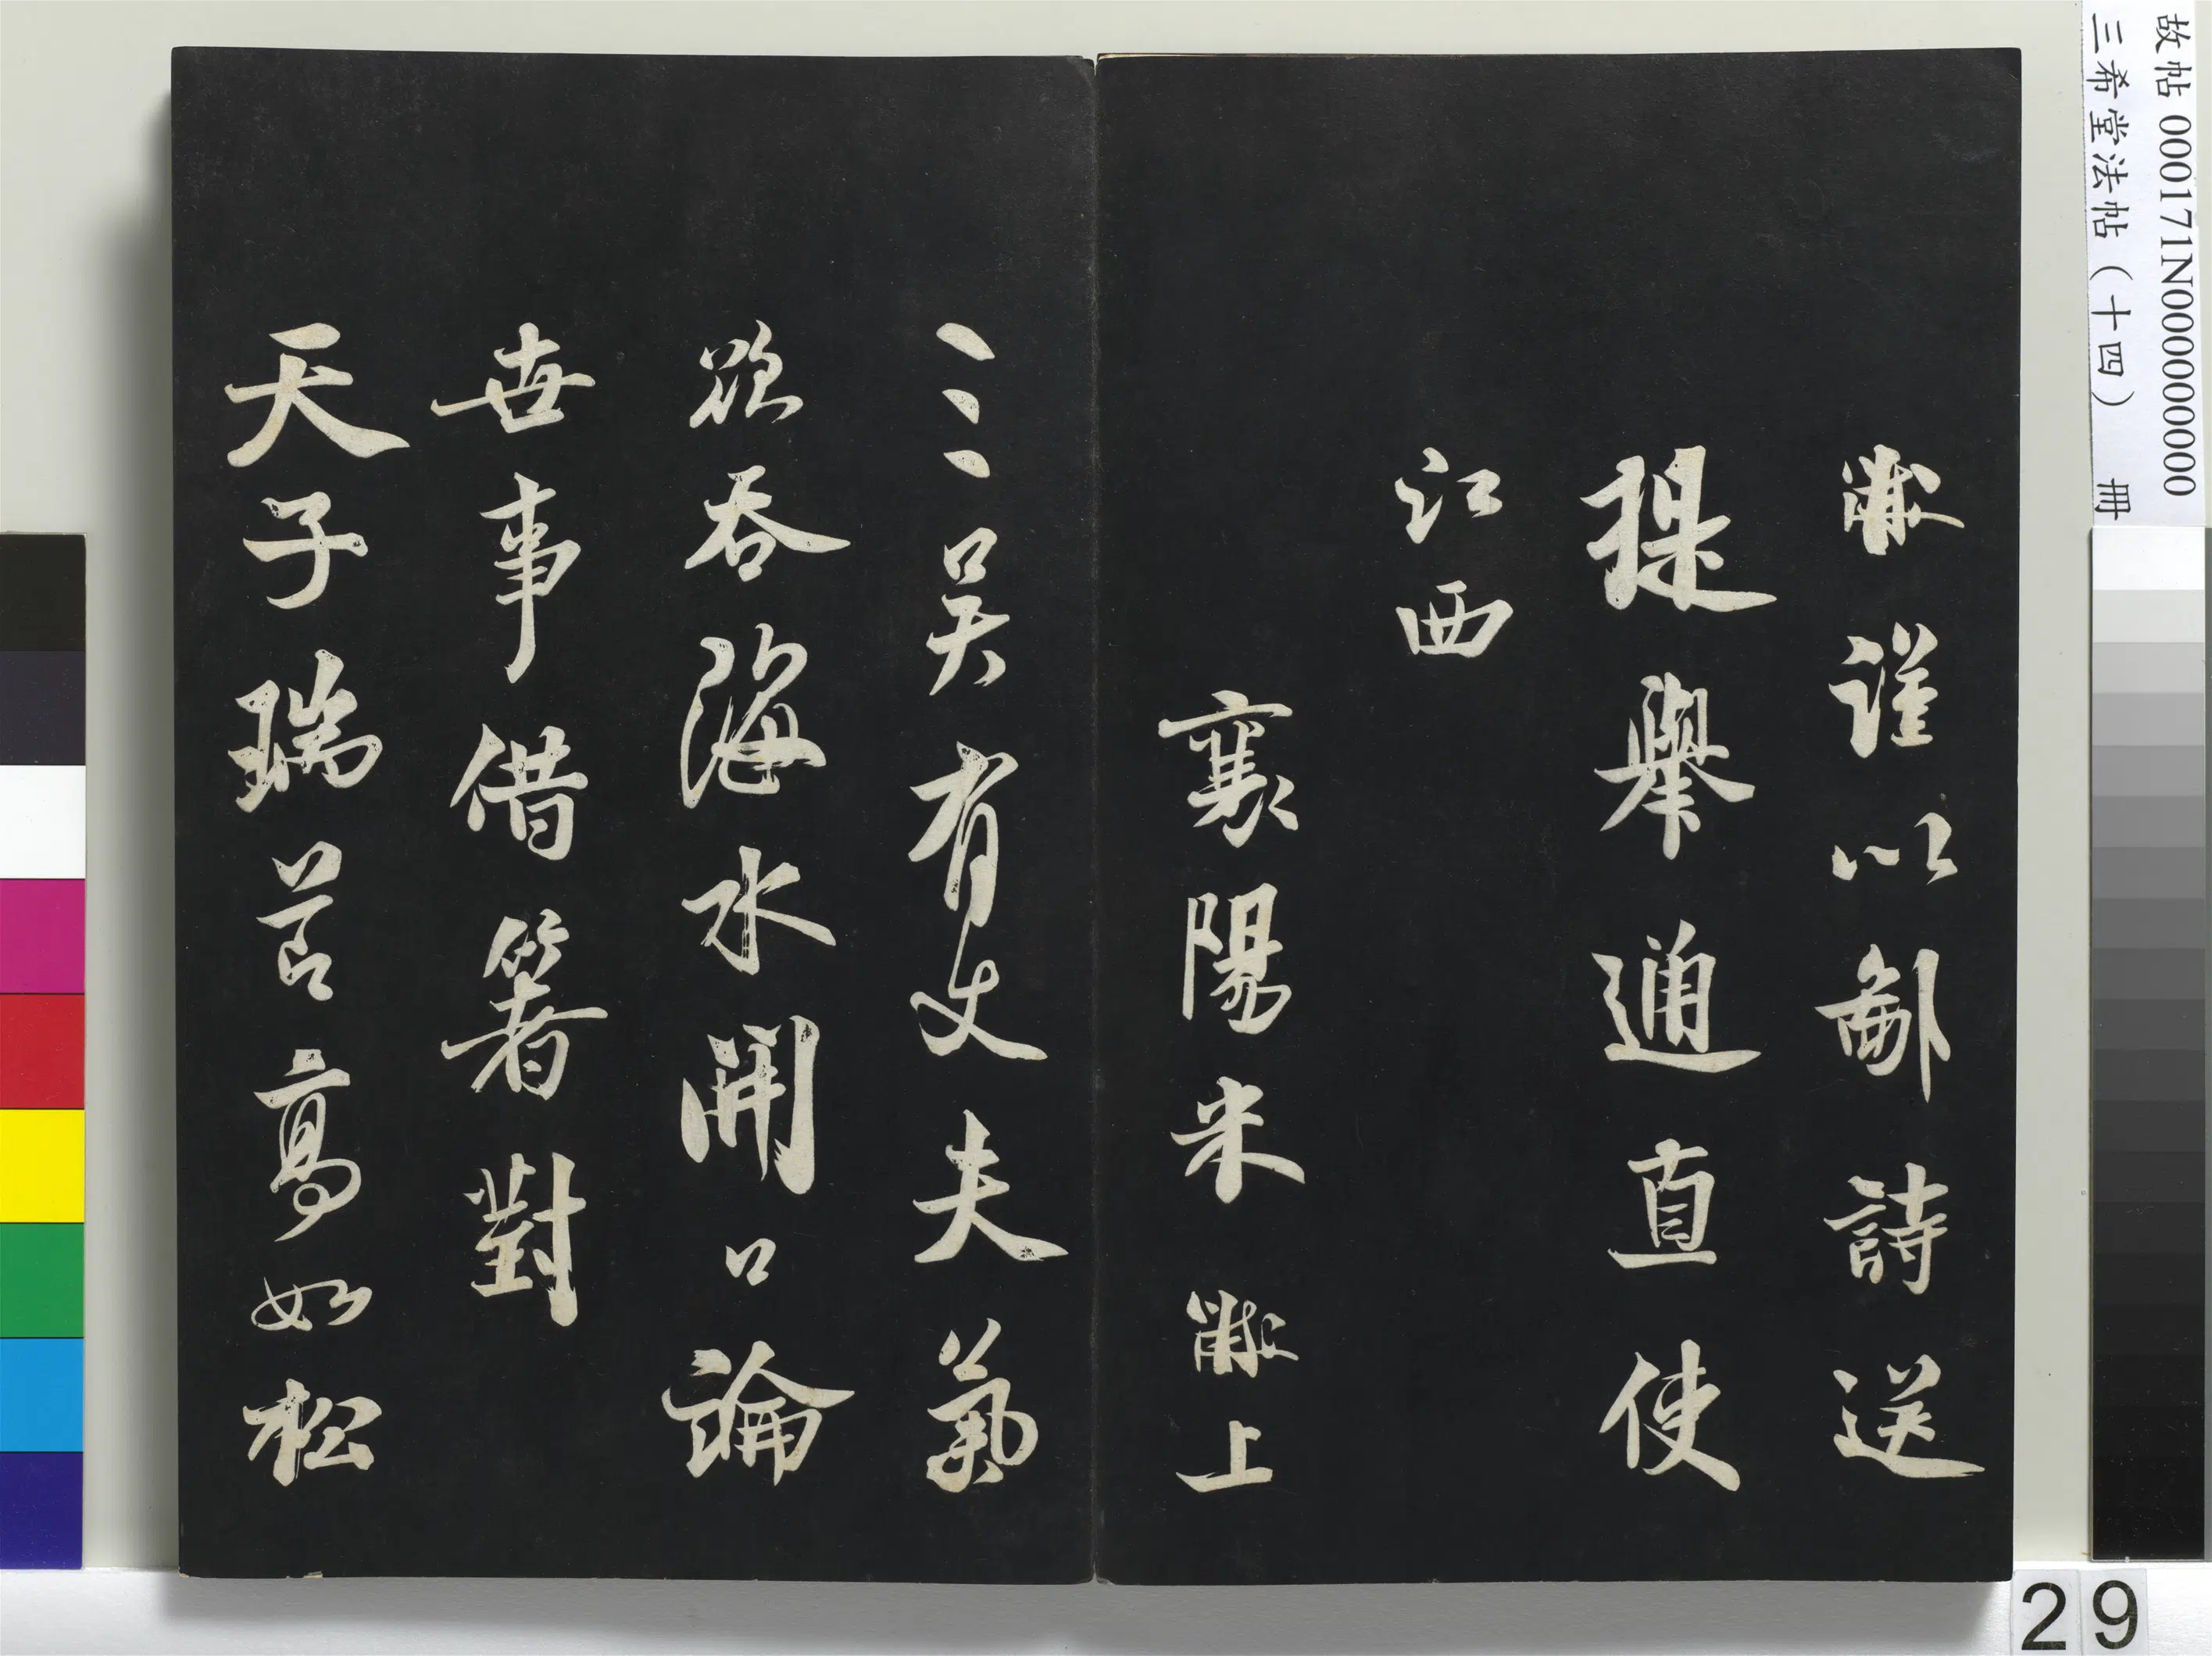 黻謹以鄙詩送
提舉通直使
江西
襄陽米黻上
三吳有丈夫氣
欲吞海水開口論
世事借箸對
天子瑞節高如松
故帖 000171N000000000
三希堂法帖（十四） 冊
29